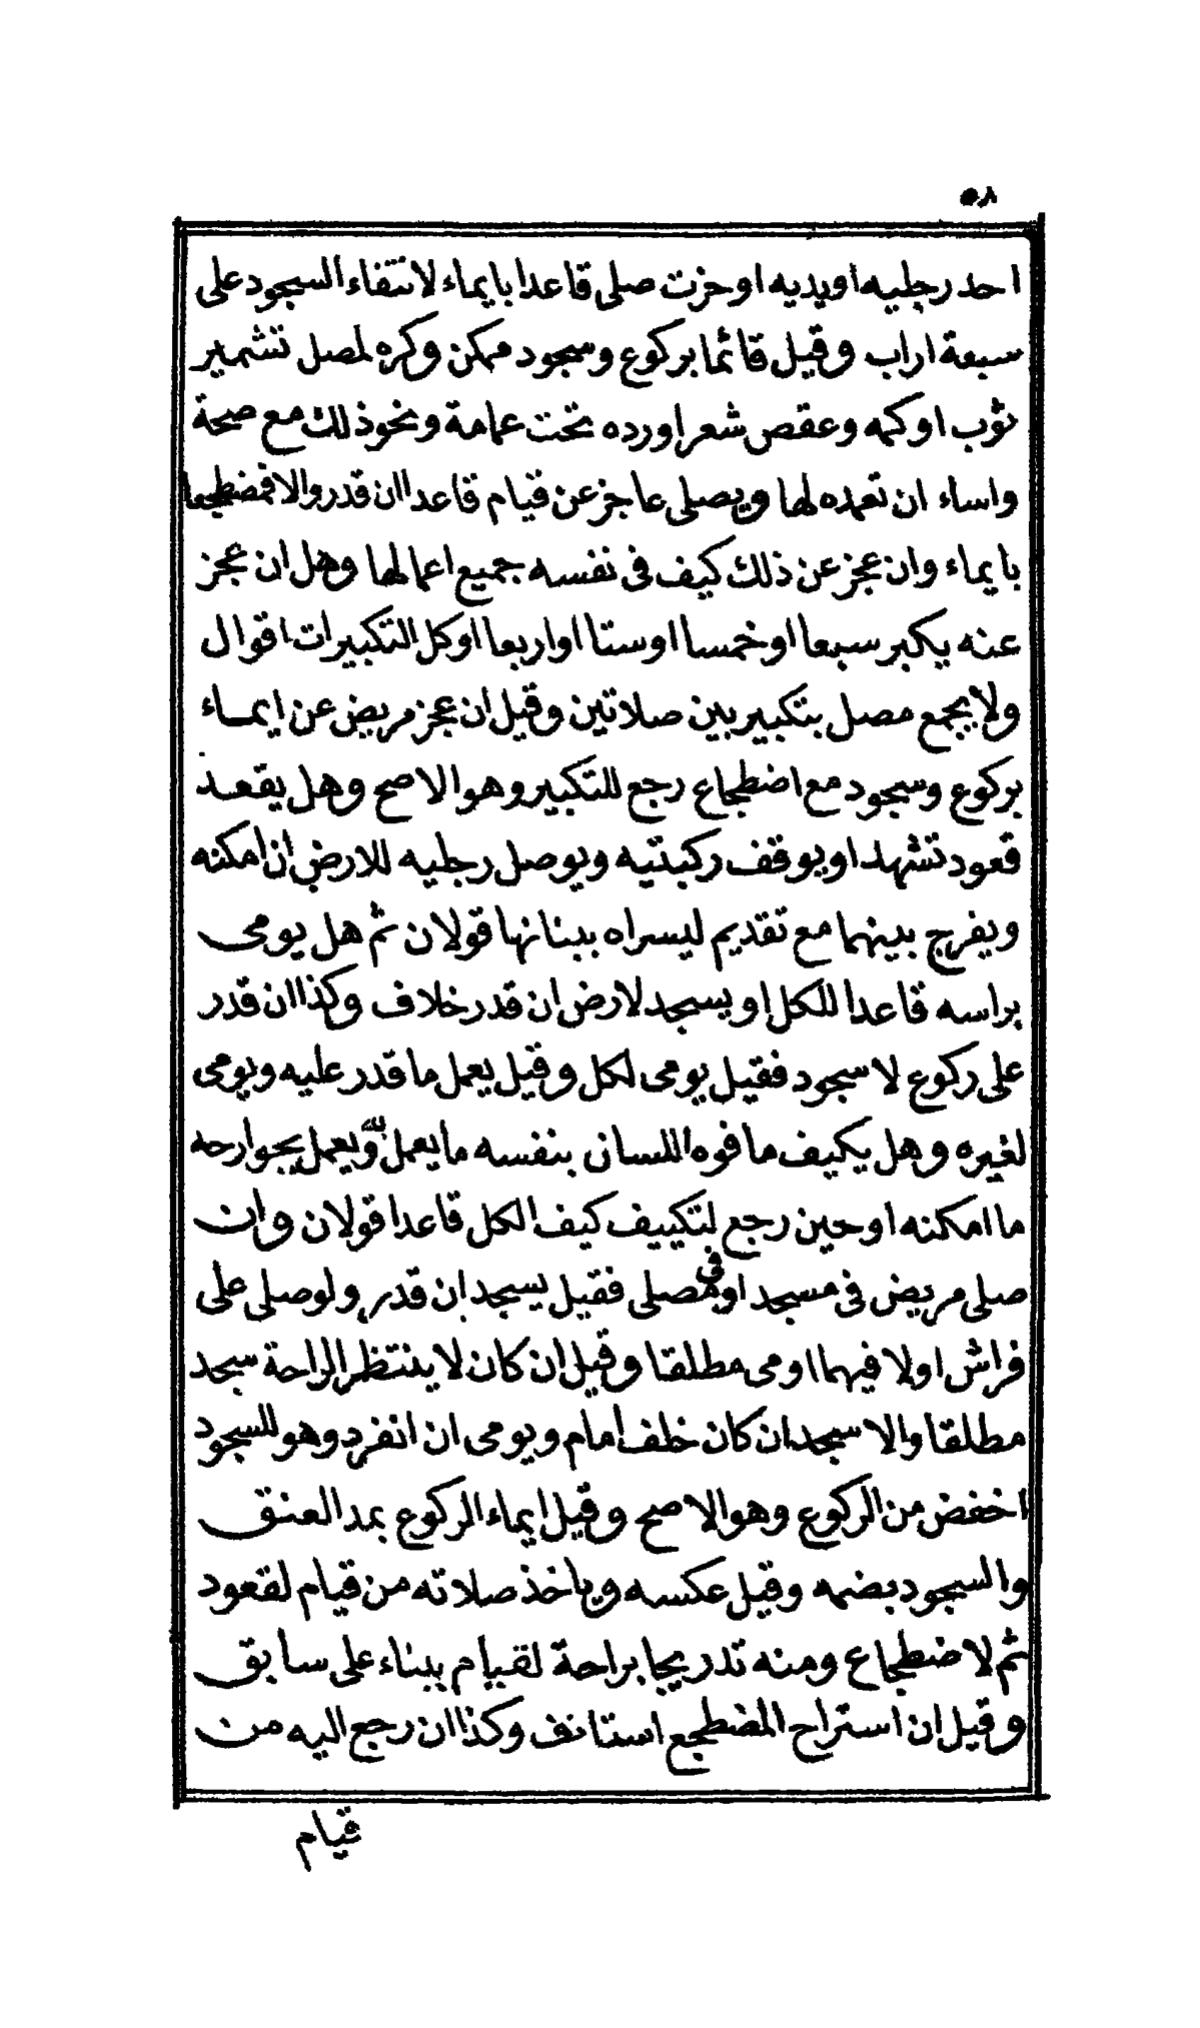 ٥٨
احد رجليه او يديه او حزت صلى قاعدا بايماء لانتفاء السجود على
سبعة اراب وقيل قائما بركوع وسجود ممكن وكره لمصل تشمير
ثوب اوكمه وعقص شعر اورده تحت عمامة ونحوذلك مع صحة
واساء ان تعمده لها ويصلى عاجز عن قيام قاعدا ان قدر والا فمضطجعا
بايماء وان عجز عن ذلك كيف فى نفسه جميع اعمالها وهل ان عجز
عنه يكبر سبعا اوخمسا اوستا اواربعا اوكل التكبيرات اقوال
ولا يجمع مصل بتكبير بين صلاتين وقيل ان عجز مريض عن ايماء
بركوع وسجود مع اضطجاع رجع للتكبير وهو الاصح وهل يقعد
قعود تشهد او يوقف ركبتيه ويوصل رجليه للارض ان امكنه
ويفرج بينهما مع تقديم ليسراه ببنانها قولان ثم هل يومى
براسه قاعدا للكل او يسجد لارض ان قدر خلاف وكذا ان قدر
على ركوع لا سجود فقيل يومى لكل وقيل يعمل ما قدر عليه ويومى
لغيره وهل يكيف ما فوه اللسان بنفسه ما يعمل به ويعمل بجوارحه
ما امكنه اوحين رجع لتكييف كيف الكل قاعدا قولان وان
صلى مريض فى مسجد او فى مصلى فقيل يسجد ان قدر ولو صلى على
فراش اولا فيهما اومى مطلقا وقيل ان كان لا ينتظر الراحة سجد
مطلقا والا سجد ان كان خلف امام ويومى ان انفرد وهو للسجود
اخفض من الركوع وهو الاصح وقيل ايماء الركوع بمد العنق
والسجود بضمه وقيل عكسه وياخذ صلاته من قيام لقعود
ثم لاضطجاع ومنه تدريجا براحة لقيام ببناء على سابق
وقيل ان استراح المضطجع استانف وكذا ان رجع اليه من
قيام